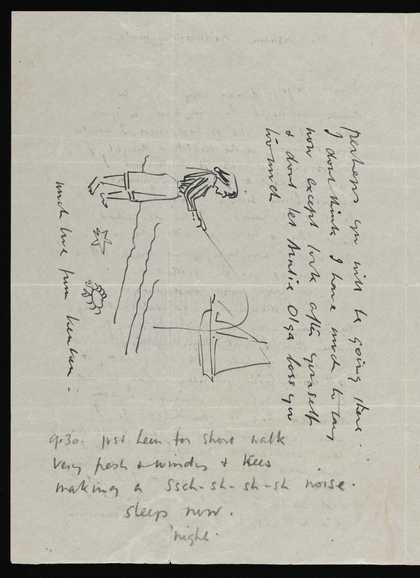 perhaps you will be going there.
I dont think I have much to say
now except look after yourself
& dont let Auntie Olga boss you
too much
much love from
9.30. just been for short walk
very fresh & windy & trees
making a ssch-sh-sh-sh noise.
sleeps now.
'night.